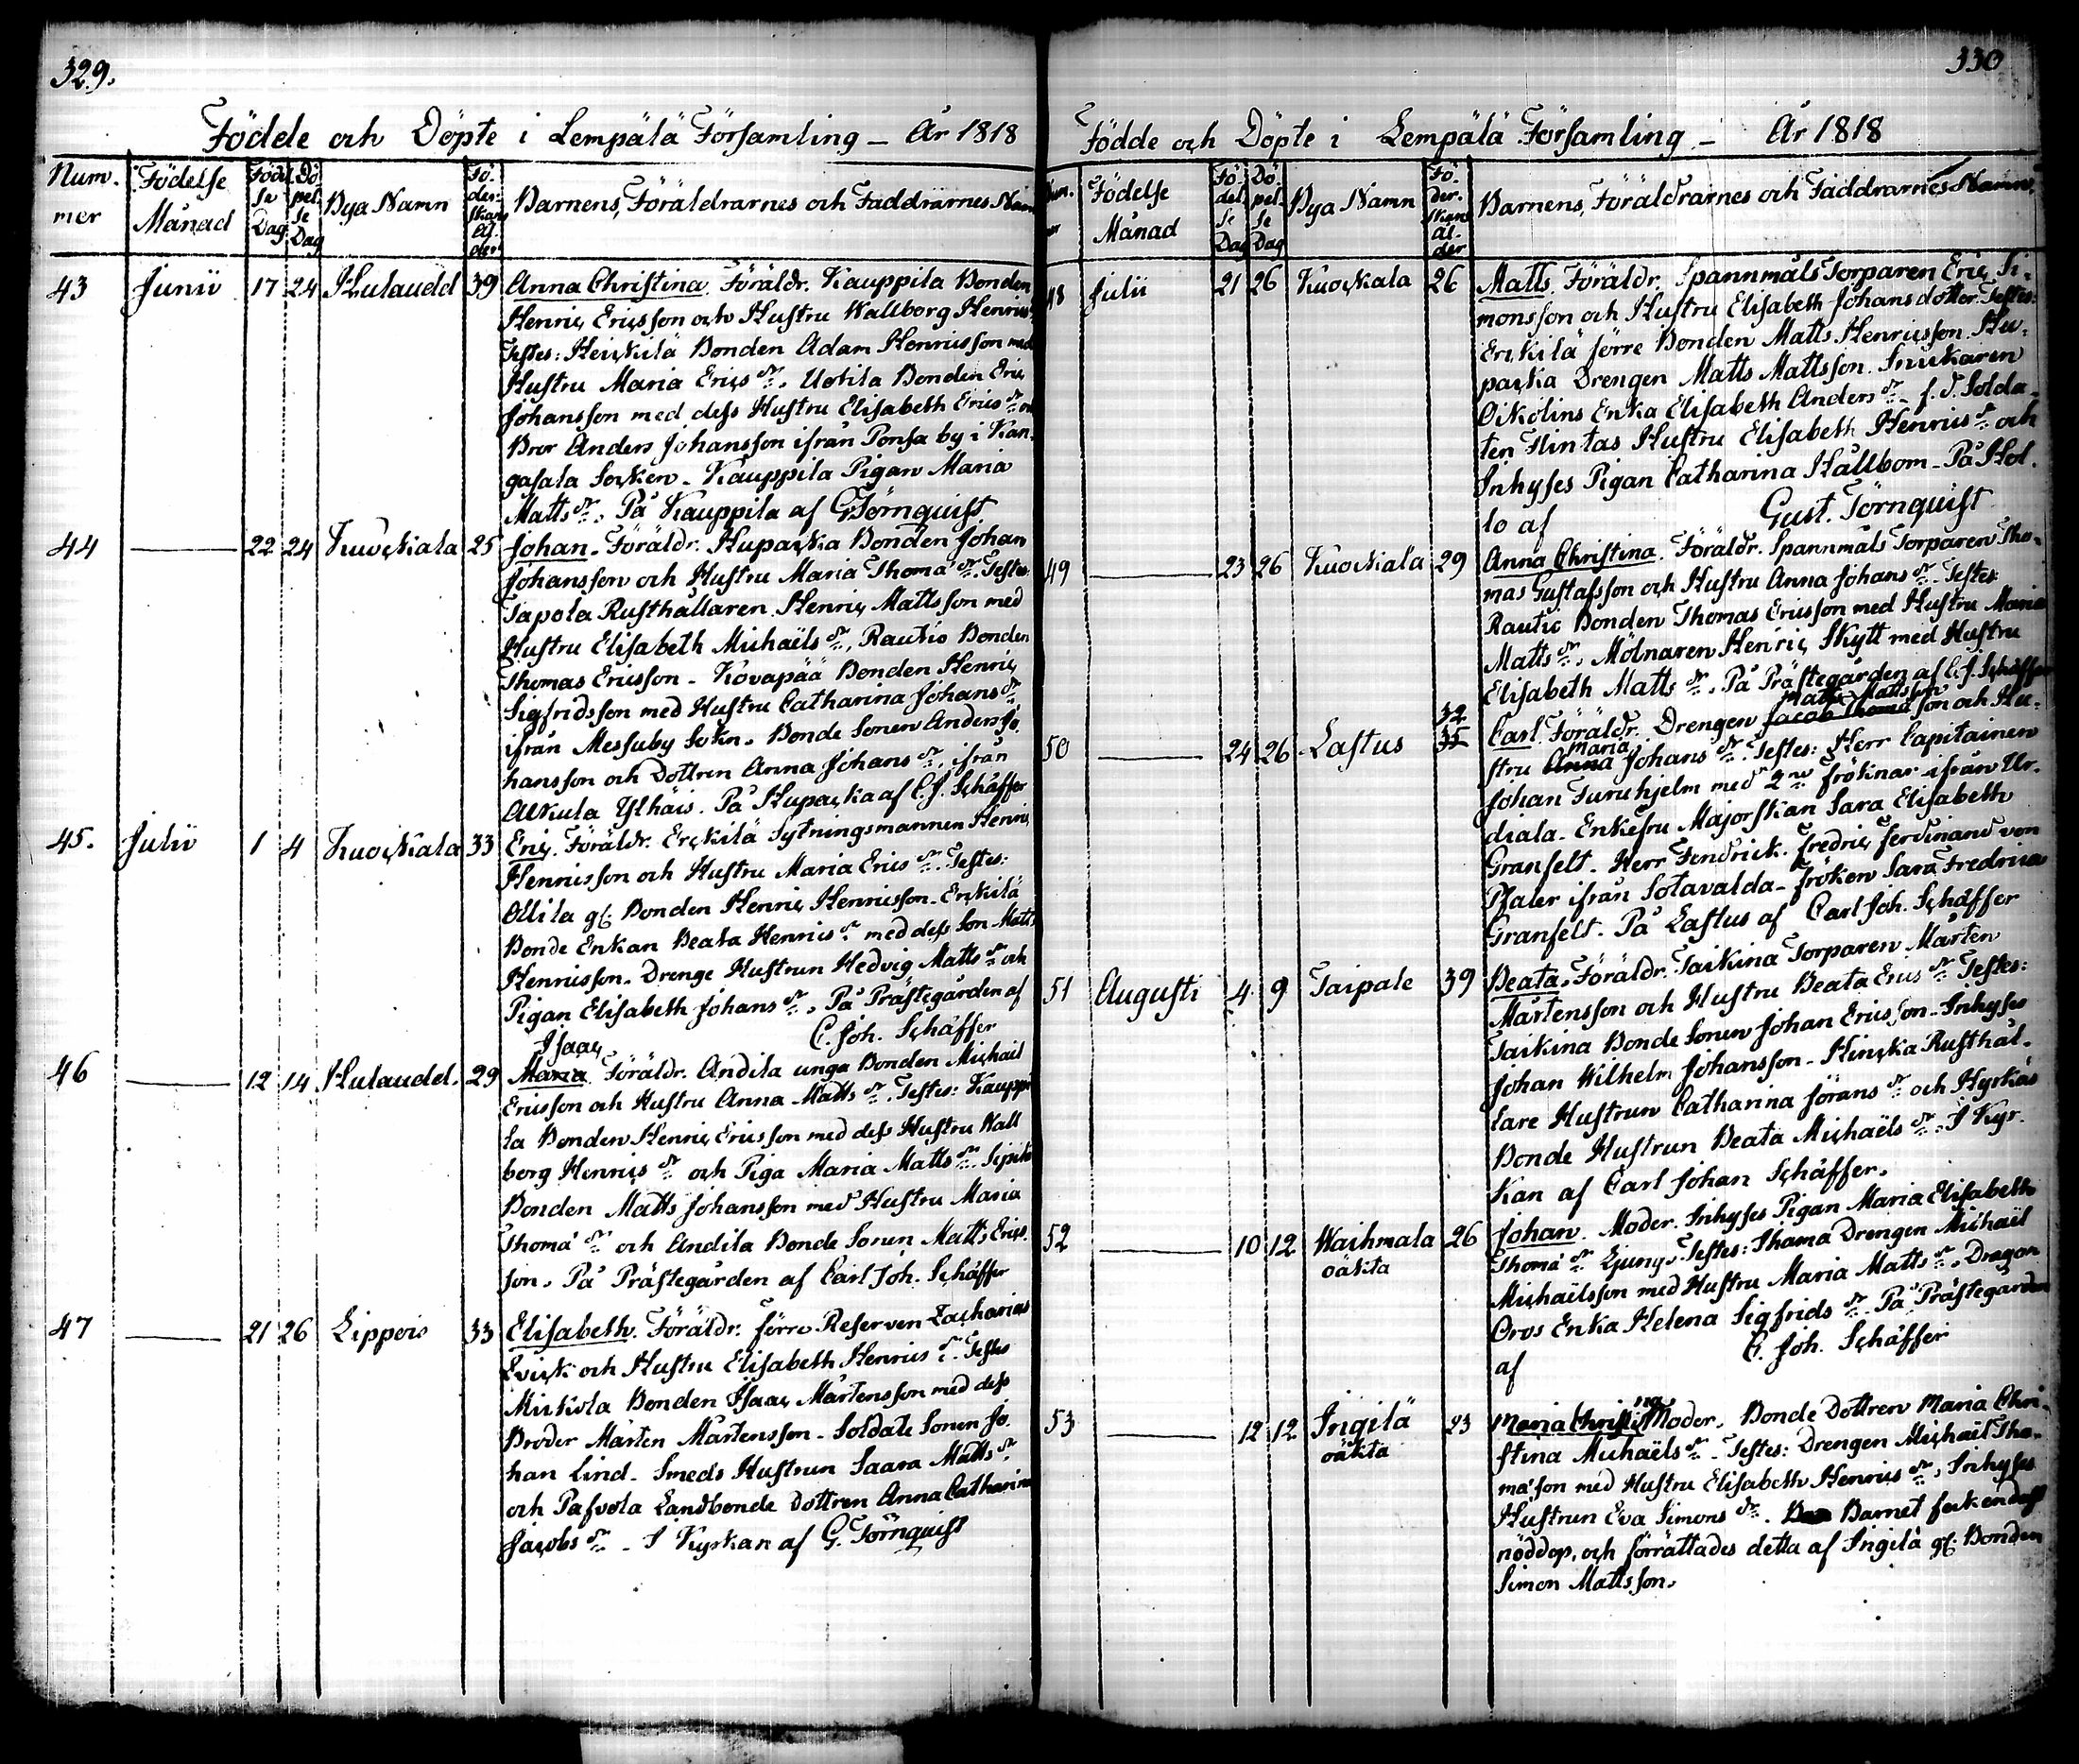 329.
Födde och Döpte i Lempälä Församling – År 1818
Num-
mer
Födelse
Månad
Föd.
se
Dag
Dö
pel
se
Dag
Bya Namn
Fö-
der-
skans
Ål-
der
Barnens, Föräldrarnes och Faddrarnes Namn
43 Junii 17 24 Hulaudd 39 Anna Christina. Föräldr. Kauppila Bonden
Henric Ericsson och Hustru Wallborg Henrics
Testes: Heickilä Bonden Adam Henricsson med
Hustru Maria Erics dr. Uotila Bonden Eric
Johansson med dess Hustru Elisabeth Erics dr och
Bror Anders Johansson ifrån Ponsa by i Kan-
gasala Socken – Kauppila Pigan Maria
Matts dr. På Kauppila af G. Törnquist
44 22 24 Kuockala 25 Johan. Föräldr. Hupacka Bonden Johan
Johansson och Hustru Maria Thomæ dr. Testes
Tapola Rusthållaren Henric Mattsson med
Hustru Elisabeth Michaëls dr, Rautio Bonden
Thomas Ericsson – Kovapää Bonden Henric
Sigfridsson med Hustru Catharina Johans dr
ifrån Messuby Sokn. Bonde Sonen Anders Jo-
hansson och Dottren Anna Johans dr, ifrån
Alkula Ylhäis. På Hupacka af C. J. Schäffer
45. Julii 1 4 Kuockala 33 Eric. Föräldr. Erckilä Sytningsmannen Henric
Henricsson och Hustru Maria Erics dr. Testes:
Ollila gl. Bonden Henric Henricsson – Erckilä
Bonde Enkan Beata Henrics dr med dess Son Matts
Henricsson – Drenge Hustrun Hedvig Matts dr och
Pigan Elisabeth Johans dr, På Prästegården af
C. Joh. Schäffer
Isaac
46 12 14 Hulaudd. 29 Maria Föräldr. Andila unga Bonden Michaël
Ericsson och Hustru Anna Matts dr. Testes: Kauppi
la Bonden Henric Ericsson med dess Hustru Wall
borg Henrics dr och Piga Maria Matts dr. Sipilä
Bonden Matts Johansson med Hustru Maria
Thomæ dr och Andila Bonde Sonen Matts Erics-
son. På Prästegården af Carl Joh. Schäffer
47 21 26 Lippois 33 Elisabeth. Föräldr. Förre Reserven Zacharias
Qvick och Hustru Elisabeth Henrics dr. Testes
Mickola Bonden Isaac Mårtensson med dess
Broder Mårten Mårtensson – Soldate Sonen Jo
han Lind – Smeds Hustrun Saara Matts dr
och Pafvola Landbonde Dottren Anna Catharina
Jacobs dr – I Kyrkan af G. Törnquist
330
Födde och Döpte i Lempälä Församling – År 1818
Num.
mer
Födelse
Månad
Fö
del
se
Dag
Dö
pel
se
Dag
Bya Namn
Fö-
der-
skans
Ål-
der
Barnens, Föräldrarnes och Faddrarnes Namn
48 Julii 21 26 Kuockala 26 Matts. Föräldr. Spannmåls Torparen Eric Si-
monsson och Hustru Elisabeth Johansdotter. Testes:
Erckilä förre Bonden Matts Henricsson. Hu-
packa Drengen Matts Mattsson. Snickaren
Oikolins Enka Elisabeth Anders dr – f. d. Solda-
ten Flintas Hustru Elisabeth Henrics dr och
Inhyses Pigan Catharina Hallbom – På Hol-
lo af Gust. Törnquist
49 23 26 Kuockala 29 Anna Christina. Föräldr. Spannmåls Torparen Tho-
mas Gustafsson och Hustru Anna Johans dr. Testes:
Rautio Bonden Thomas Ericsson med Hustru Maria
Matts dr. Mölnaren Henric Skytt med Hustru
Elisabeth Matts dr. På Prästegården af C. J. Schäffer
32 Matts Matts
50 24 26 Lastus 35 Carl. Föräldr. Drengen Jacob Thomæ son och Hu-
Maria
stru Anna Johans dr. Testes: Herr Capitainen
Johan Furuhjelm med 2ne fröknar ifrån Ur-
diala – Enkefru Majorskan Sara Elisabeth
Granfelt – Herr Fendrick. Fredric Ferdinand von
Pfaler ifrån Sotavalda – Fröken Sara Fredrica
Granfelt. På Lastus af Carl Joh. Schäffer
51 Augusti 4 9 Taipale 39 Beata. Föräldr. Taikina Torparen Mårten
Mårtensson och Hustru Beata Erics dr. Testes:
Taikina Bonde Sonen Johan Ericsson – Inhyses
Johan Wilhelm Johansson – Hincka Rusthål-
lare Hustrun Catharina Jörans dr och Hyrkäs
Bonde Hustrun Beata Michaëls dr. I Kyr-
kan af Carl Johan Schäffer.
52 10 12 Waihmala 26 Johan. Moder. Inhyses Pigan Maria Elisabeth
oäkta
Thomæ dr Ljung. Testes: Thama Drengen Michaël
Michaëlsson med Hustru Maria Matts dr. Dragon
Oros Enka Helena Sigfrids dr. På Prästegården
af C. Joh. Schäffer
na
53 12 12 Ingilä 23 Maria Christi Moder. Bonde Dottren Maria Chri-
oäkta
stina Michaëls dr – Testes: Drengen Michaël Tho-
mæson med Hustru Elisabeth Henrics dr, Inhyses
Hustrun Eva Simons dr. Barnet fick endast
nöddop, och förrättades detta af Ingilä gl. Bonden
Simon Mattsson.